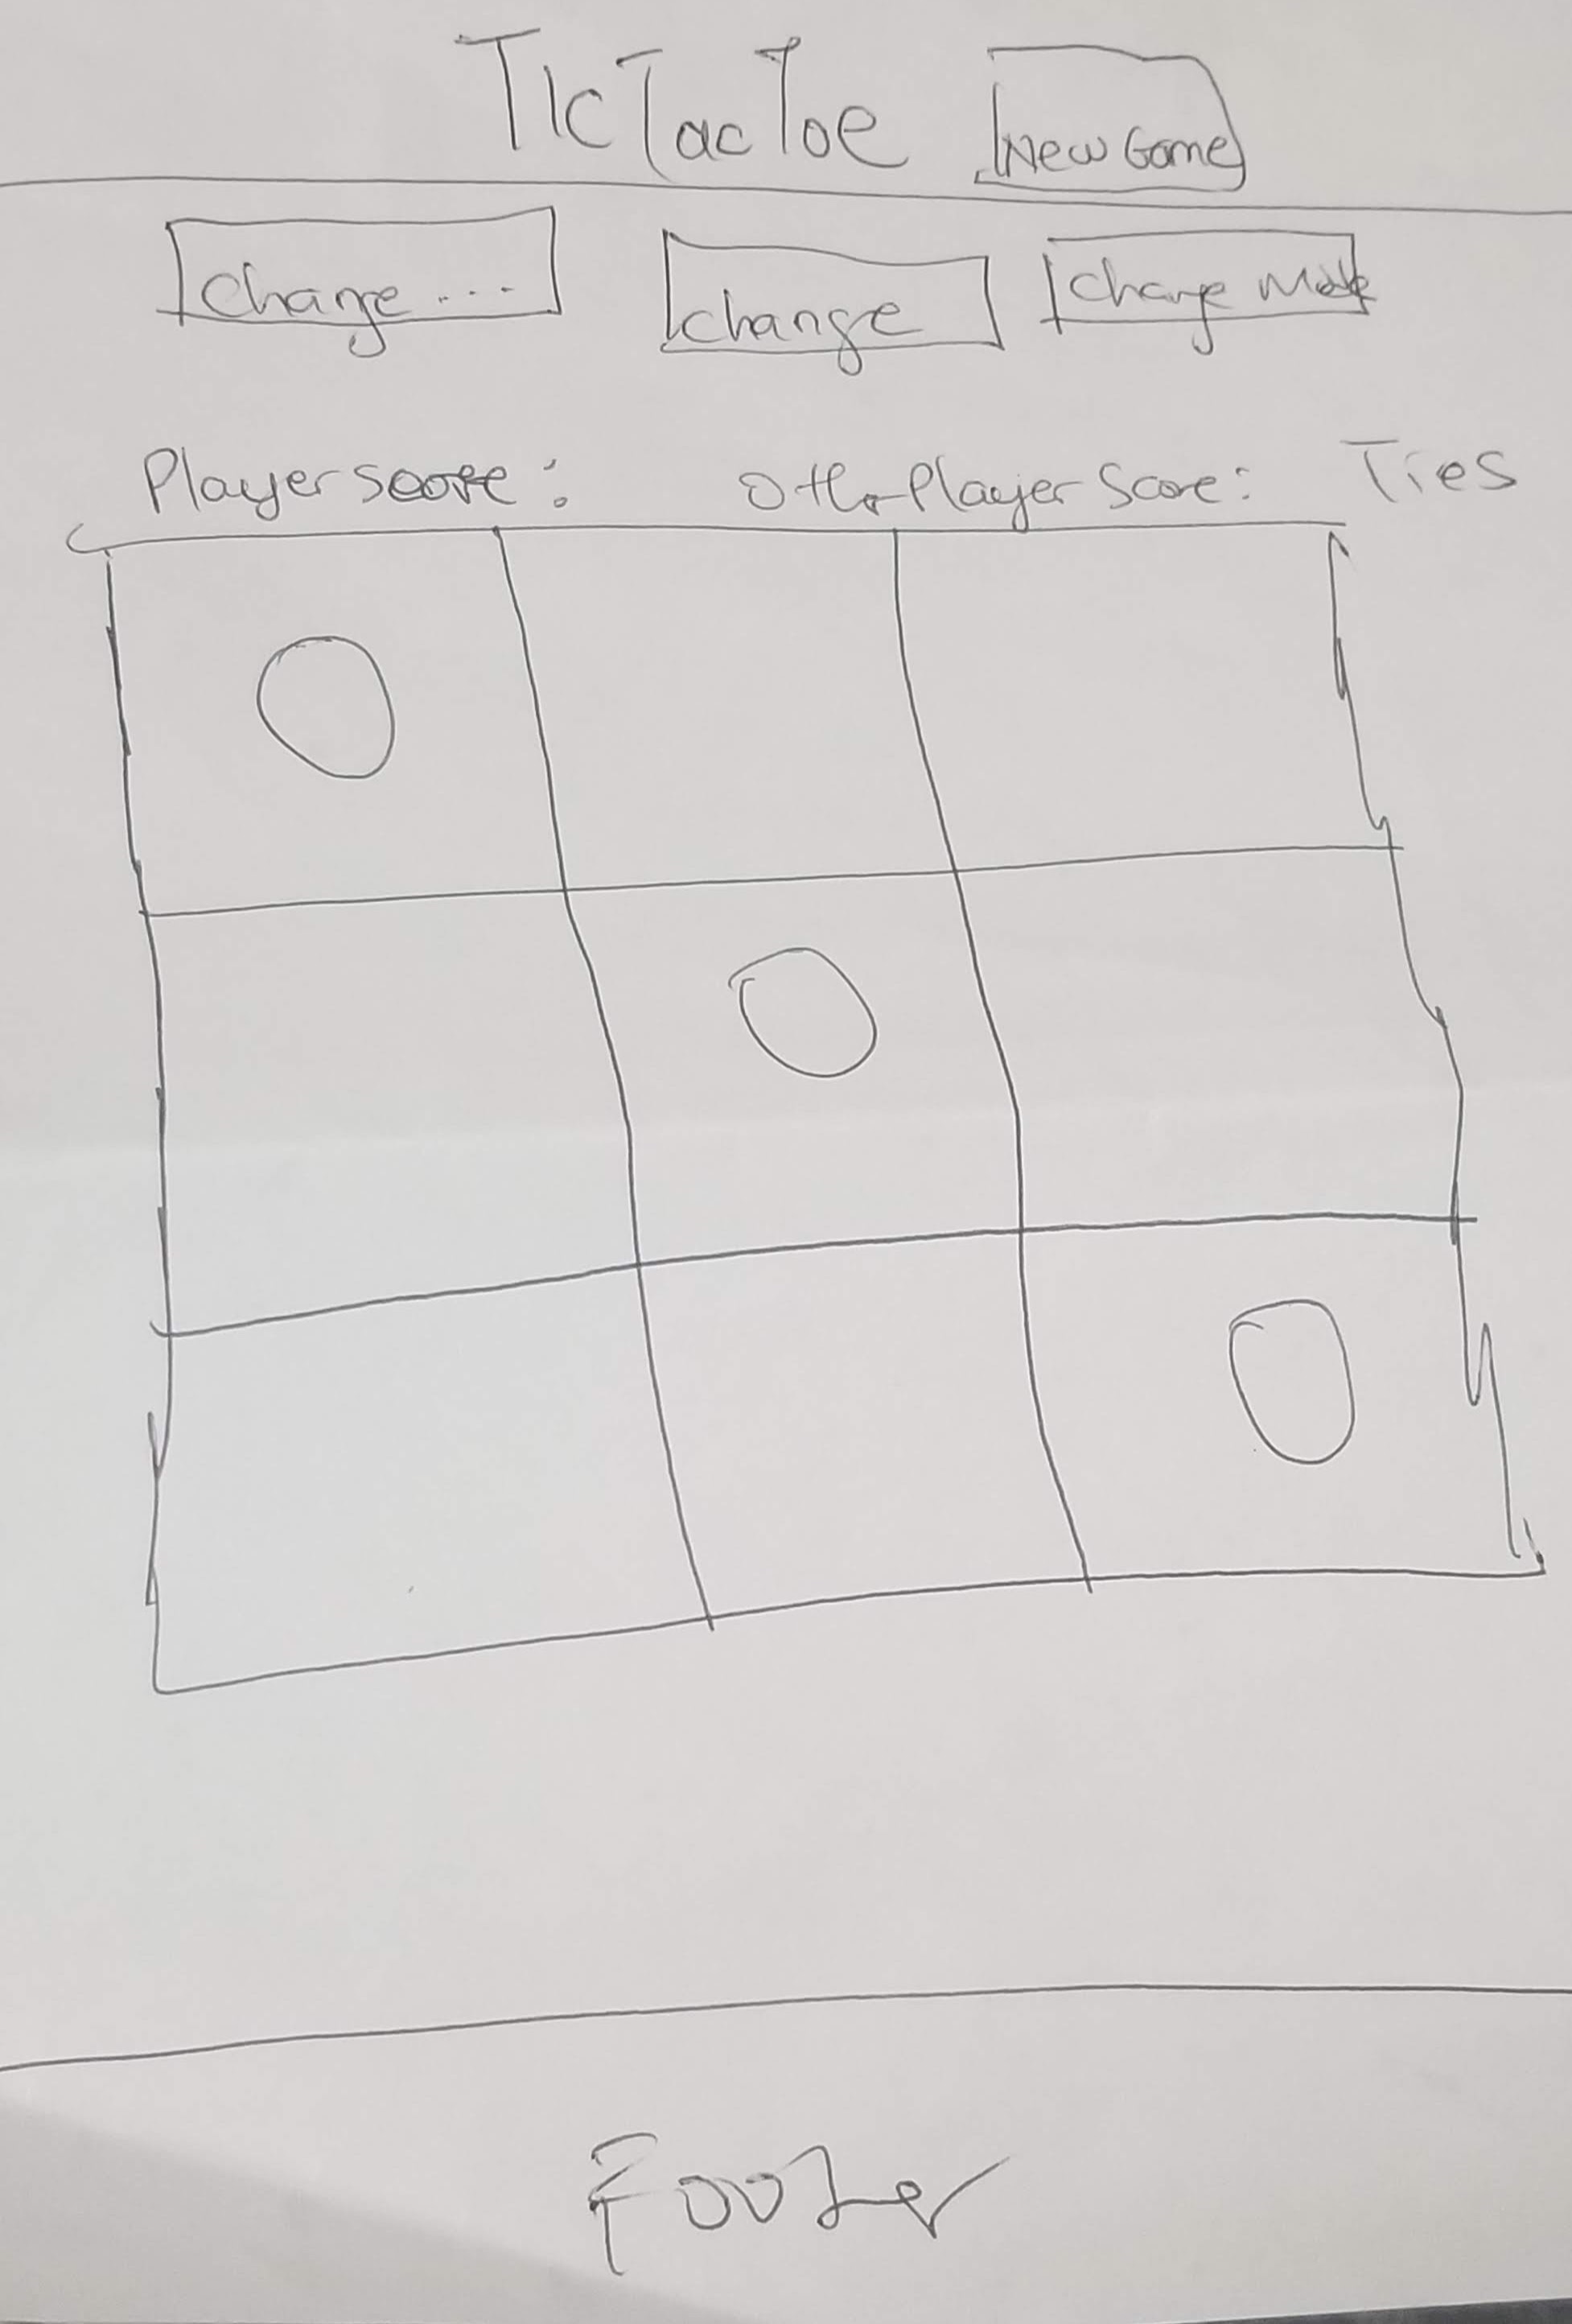 TicTacToe New Game
Change ... change Change Mode
Player score: Other Player Score: Ties
Footer